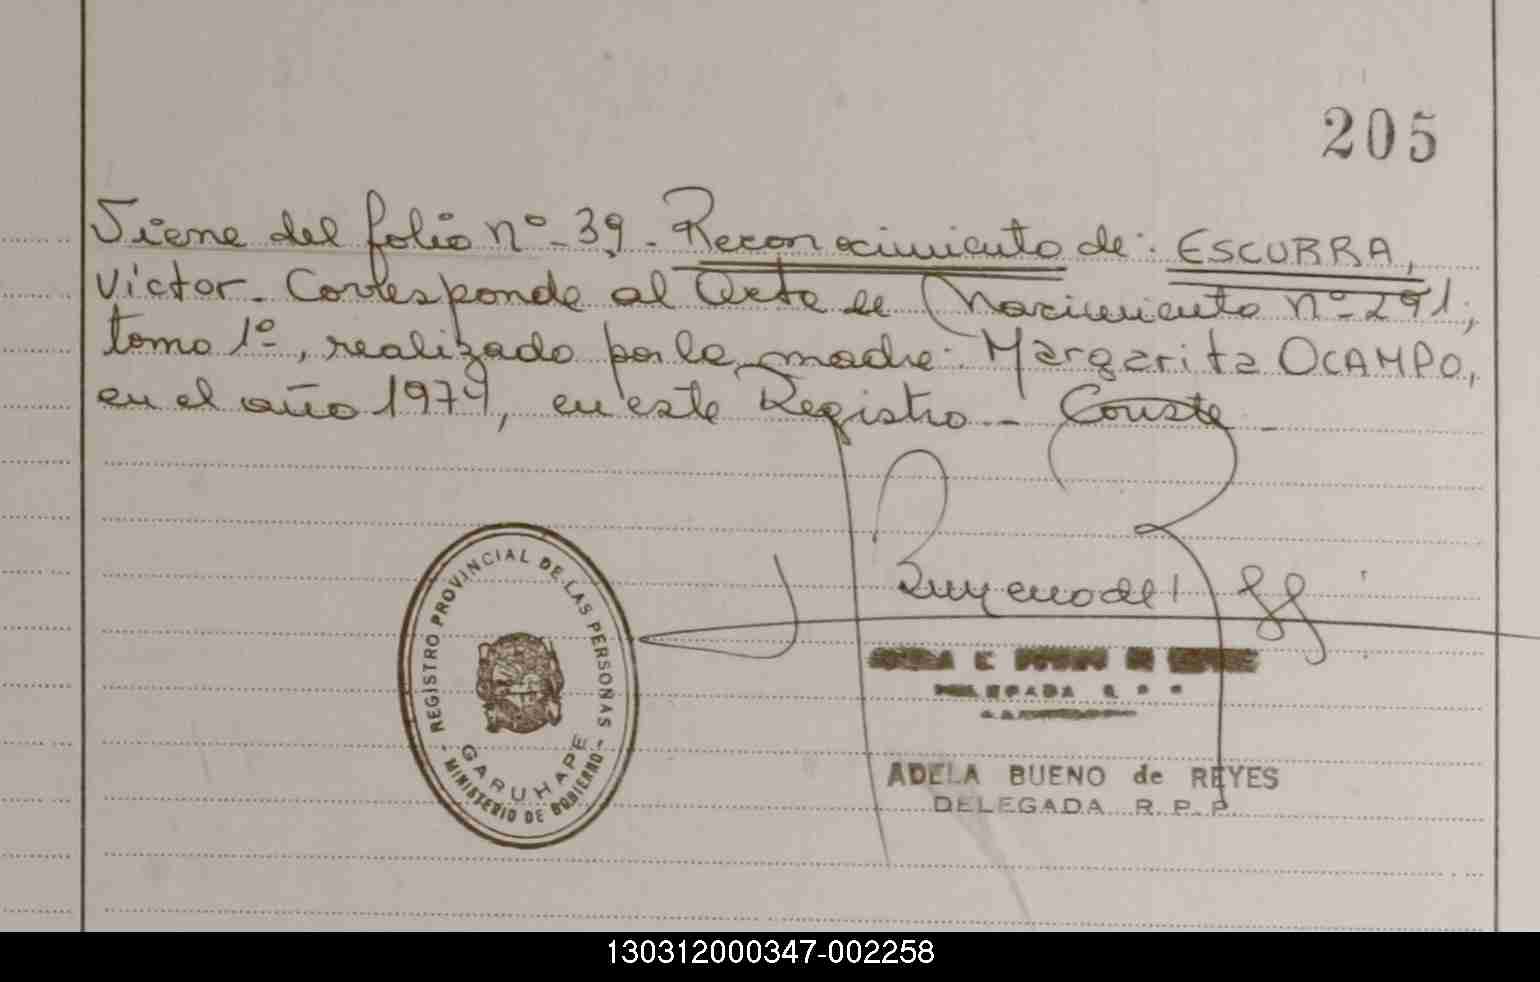 205
Viene del folio nº-39.- Reconocimiento de: ESCURRA,
Víctor.- Corresponde al Acta de Nacimiento nº-291,
tomo 1º, realizado por la madre: Margarita OCAMPO,
en el año 1974, en este Registro.- Conste.-
REGISTRO PROVINCIAL DE LAS PERSONAS
GARUHAPE
- MINISTERIO DE GOBIERNO -
DELEGADA R. P. P.
ADELA BUENO de REYES
DELEGADA R. P. P.
130312000347-002258